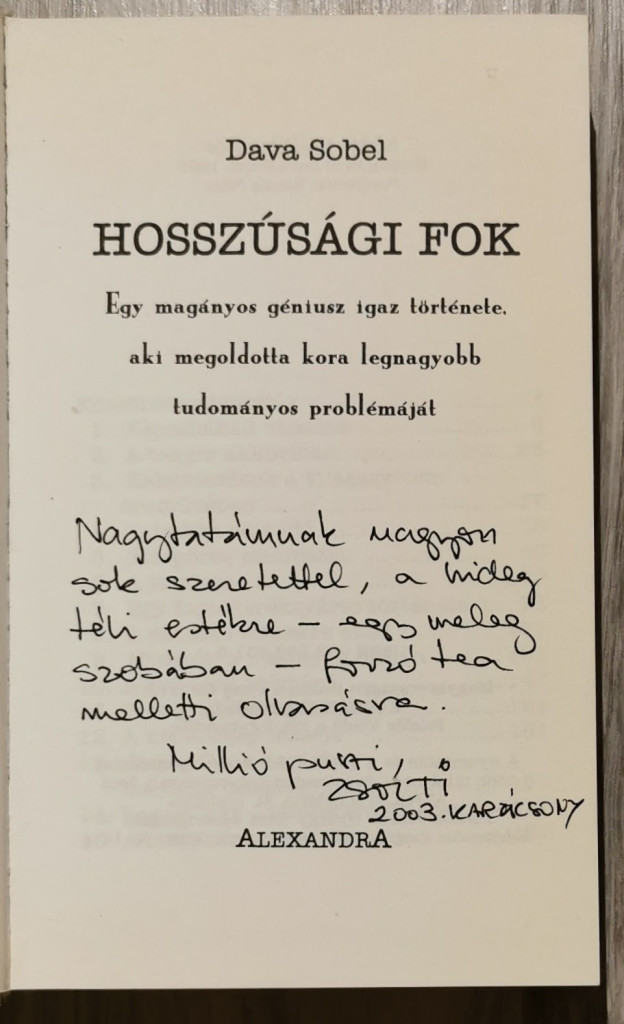 Dava Sobel
HOSSZÚSÁGI FOK
Egy magányos géniusz igaz története,
aki megoldotta kora legnagyobb
tudományos problémáját
Nagytatámnak nagyon
sok szeretettel, a hideg
téli estékre – egy meleg
szobában – forró tea
melletti olvasásra.
Millió puszi,
ZSOLTI
2003. KARÁCSONY
ALEXANDRA